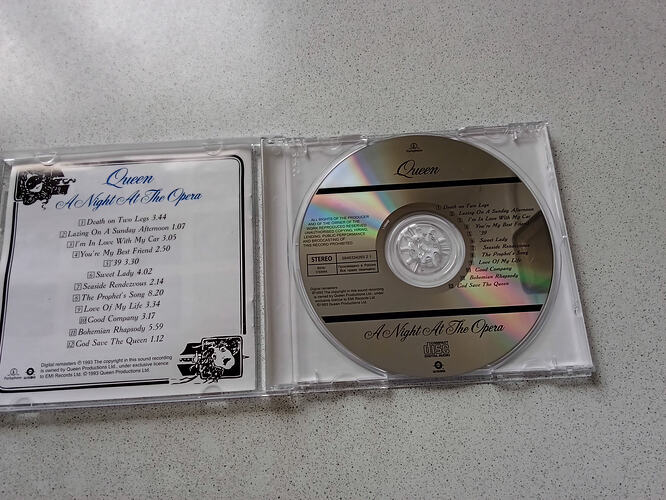 Queen
A Night At The Opera
1 Death on Two Legs 3.44
2 Lazing On A Sunday Afternoon 1.07
3 I'm In Love With My Car 3.05
4 You're My Best Friend 2.50
5 '39 3.30
6 Sweet Lady 4.02
7 Seaside Rendezvous 2.14
8 The Prophet's Song 8.20
9 Love Of My Life 3.34
10 Good Company 3.17
11 Bohemian Rhapsody 5.59
12 God Save The Queen 1.12
Digital remasters ℗ 1993 The copyright in this sound recording
is owned by Queen Productions Ltd., under exclusive licence
to EMI Records Ltd. © 1993 Queen Productions Ltd.
Parlophone
Queen
ALL RIGHTS OF THE PRODUCER
AND OF THE OWNER OF THE
WORK REPRODUCED RESERVED
UNAUTHORISED COPYING, HIRING,
LENDING, PUBLIC PERFORMANCE
AND BROADCASTING OF
THIS RECORD PROHIBITED
STEREO
Digital remasters
℗ 1993 The copyright in this sound recording
is owned by Queen Productions Ltd. under
exclusive licence to EMI Records Ltd.
© 1993 Queen Productions Ltd.
Death on Two Legs
Lazing On A Sunday Afternoon
I'm In Love With My Car
You're My Best Friend
'39
Sweet Lady
Seaside Rendezvous
The Prophet's Song
Love Of My Life
Good Company
Bohemian Rhapsody
God Save The Queen
A Night At The Opera
COMPACT
disc
DIGITAL AUDIO